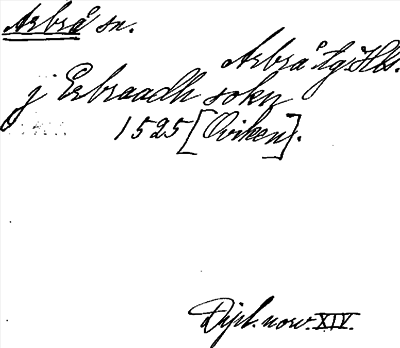 Arbrå sn.
Arbrå tg. Hls.
j Erbraadh sokn
1525 [Oviken].
Dipl. norv. XIV.